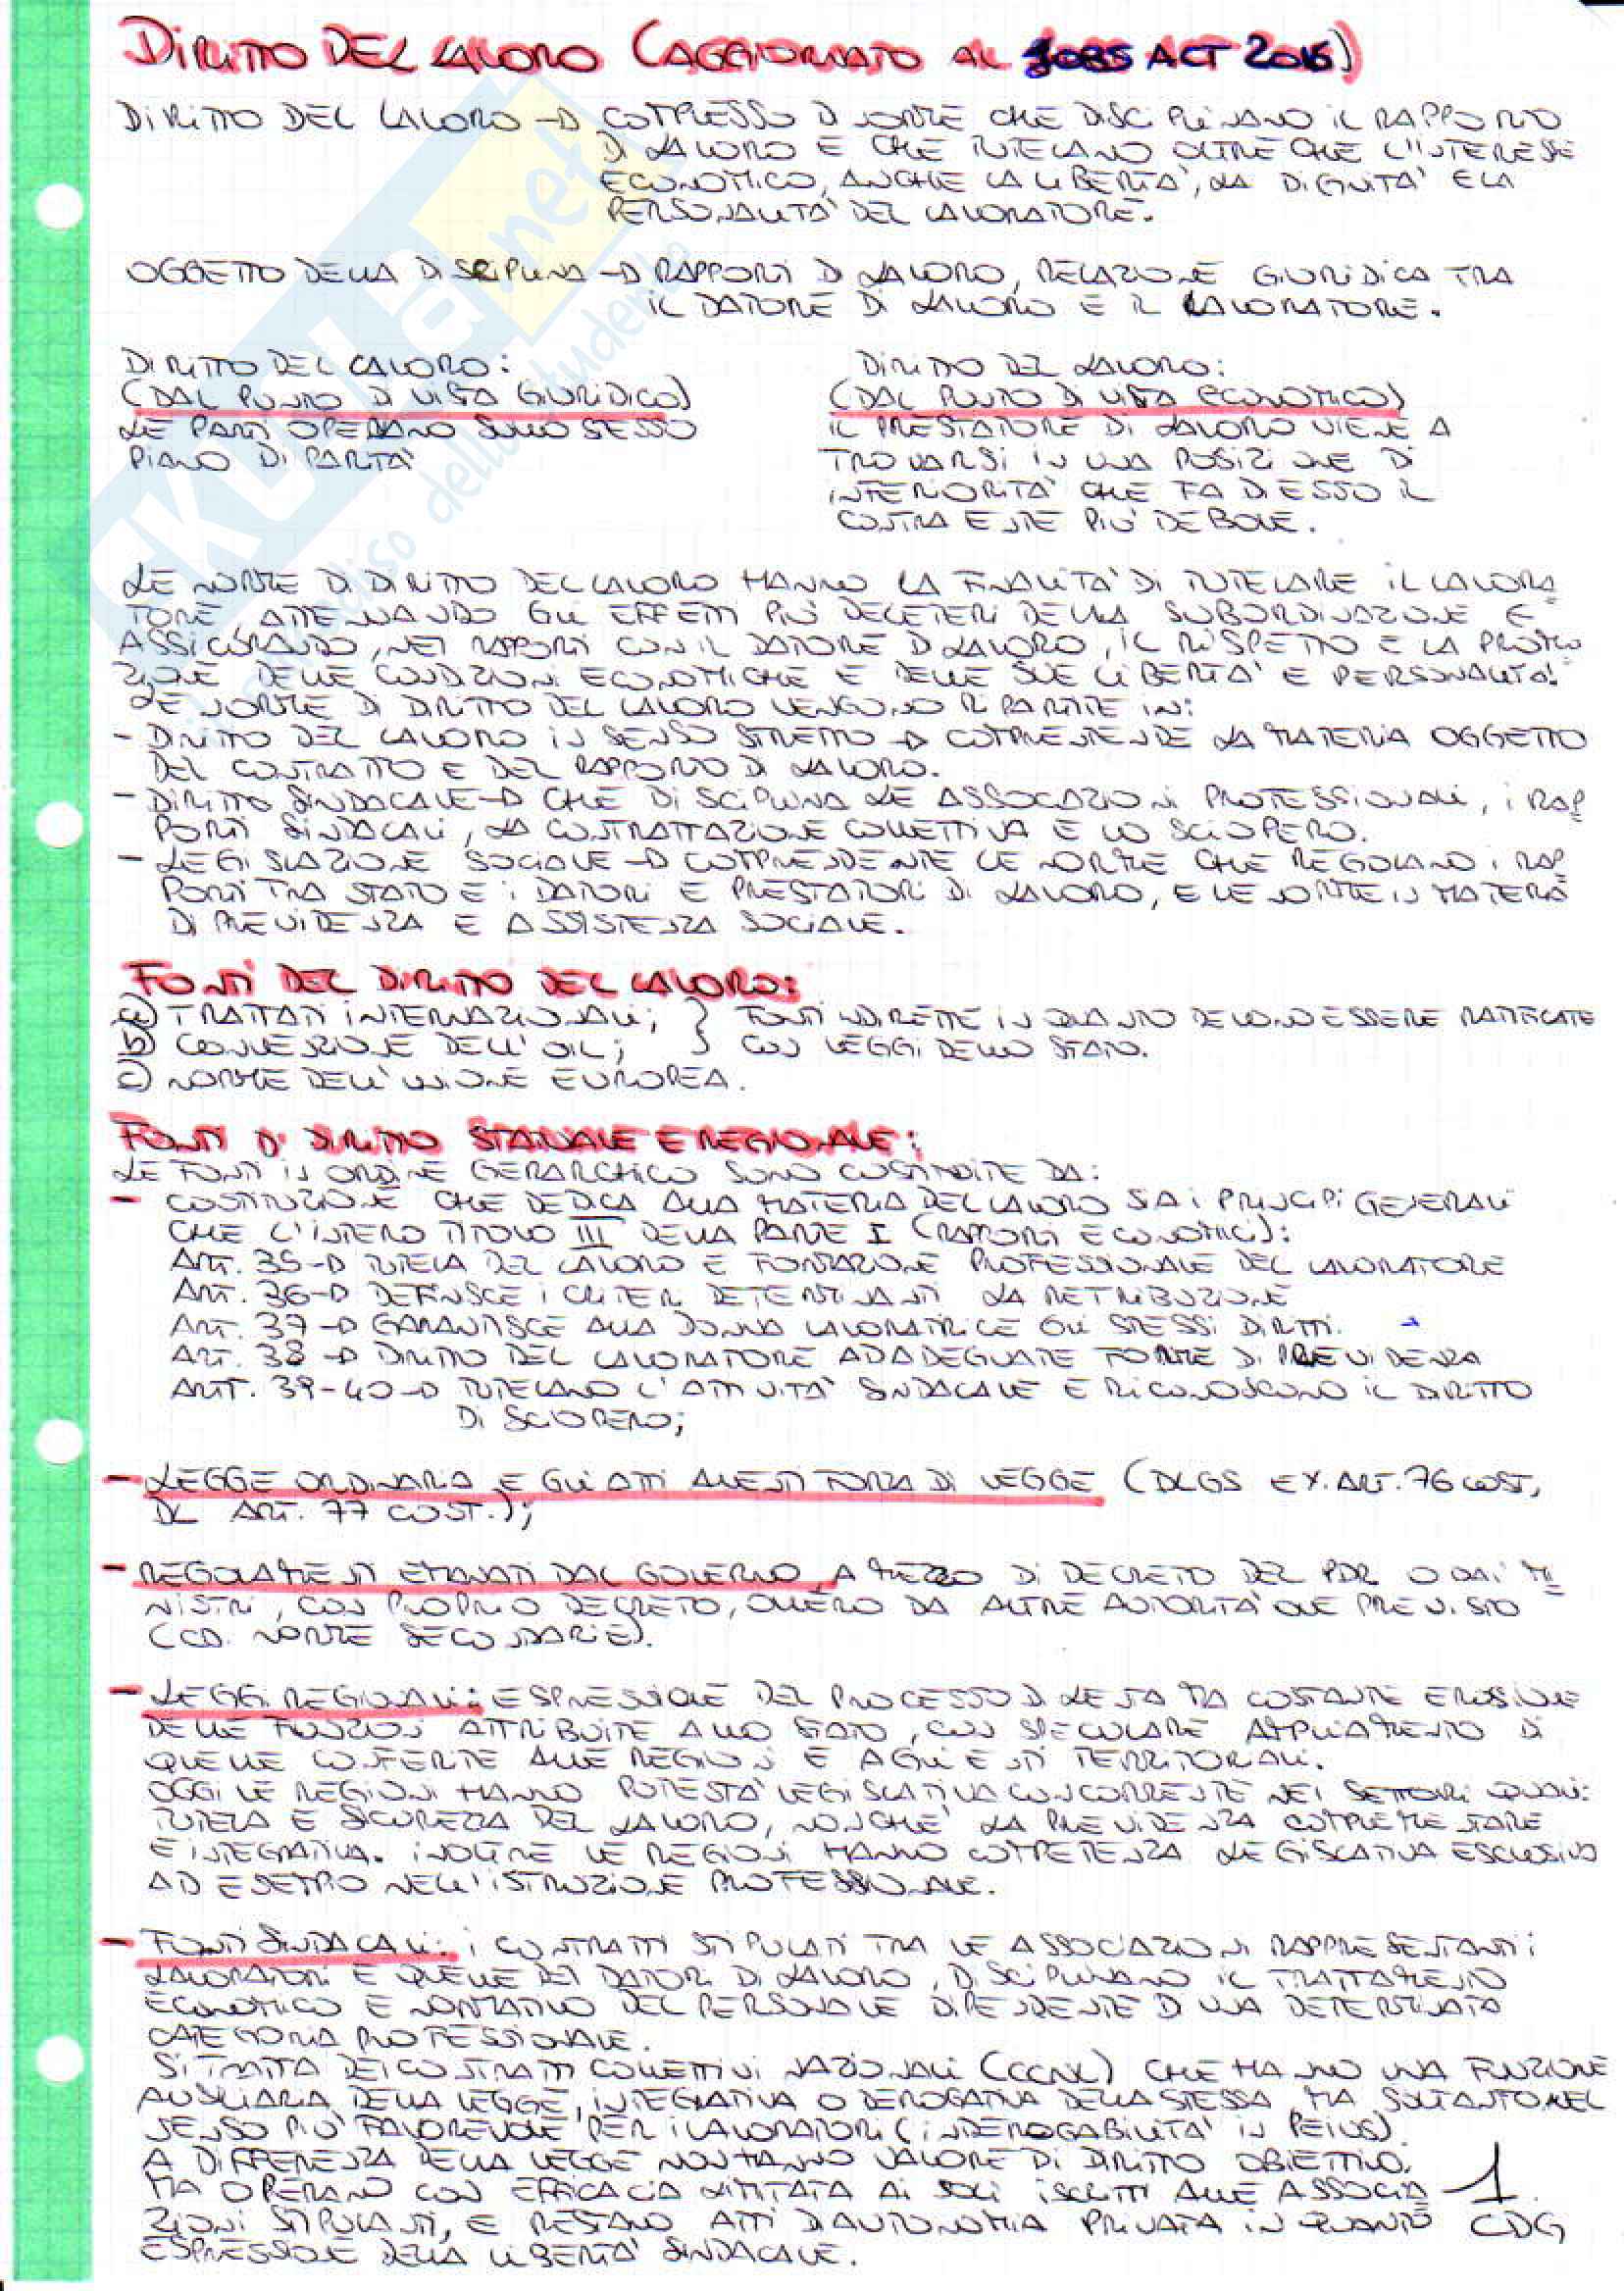 DIRITTO DEL LAVORO (AGGIORNATO AL JOBS ACT 2016)
DIRITTO DEL LAVORO → COMPLESSO DI NORME CHE DISCIPLINANO IL RAPPORTO
DI LAVORO E CHE TUTELANO OLTRE CHE L'INTERESSE
ECONOMICO, ANCHE LA LIBERTA', LA DIGNITA' E LA
PERSONALITA' DEL LAVORATORE.
OGGETTO DELLA DISCIPLINA → RAPPORTI DI LAVORO, RELAZIONE GIURIDICA TRA
IL DATORE DI LAVORO E IL LAVORATORE.
DIRITTO DEL LAVORO:
(DAL PUNTO DI VISTA GIURIDICO)
LE PARTI OPERANO SULLO STESSO
PIANO DI PARITA'
DIRITTO DEL LAVORO:
(DAL PUNTO DI VISTA ECONOMICO)
IL PRESTATORE DI LAVORO VIENE A
TROVARSI IN UNA POSIZIONE DI
INFERIORITA' CHE FA DI ESSO IL
CONTRAENTE PIU' DEBOLE.
LE NORME DI DIRITTO DEL LAVORO HANNO LA FINALITA' DI TUTELARE IL LAVORA=
TORE, ATTENUANDO GLI EFFETTI PIU' DELETERI DELLA SUBORDINAZIONE E
ASSICURANDO, NEI RAPPORTI CON IL DATORE DI LAVORO, IL RISPETTO E LA PROMO
ZIONE DELLE CONDIZIONI ECONOMICHE E DELLE SUE LIBERTA' E PERSONALITA'.
LE NORME DI DIRITTO DEL LAVORO VENGONO RIPARTITE IN:
- DIRITTO DEL LAVORO IN SENSO STRETTO → COMPRENDENTE LA MATERIA OGGETTO
DEL CONTRATTO E DEL RAPPORTO DI LAVORO.
- DIRITTO SINDACALE → CHE DISCIPLINA LE ASSOCIAZIONI PROFESSIONALI, I RAP=
PORTI SINDACALI, LA CONTRATTAZIONE COLLETTIVA E LO SCIOPERO.
- LEGISLAZIONE SOCIALE → COMPRENDENTE LE NORME CHE REGOLANO I RAP=
PORTI TRA STATO E I DATORI E PRESTATORI DI LAVORO, E LE NORME IN MATERIA
DI PREVIDENZA E ASSISTENZA SOCIALE.
FONTI DEL DIRITTO DEL LAVORO:
a) TRATTATI INTERNAZIONALI; } FONTI INDIRETTE IN QUANTO DEVONO ESSERE RATIFICATE
b) CONVENZIONE DELL'OIL; } CON LEGGI DELLO STATO.
c) NORME DELL'UNIONE EUROPEA.
FONTI DI DIRITTO STATUALE E REGIONALE:
LE FONTI IN ORDINE GERARCHICO SONO COSTITUITE DA:
- COSTITUZIONE CHE DEDICA ALLA MATERIA DEL LAVORO SIA I PRINCIPI GENERALI
CHE L'INTERO TITOLO III DELLA PARTE I (RAPPORTI ECONOMICI):
ART. 35 → TUTELA DEL LAVORO E FORMAZIONE PROFESSIONALE DEL LAVORATORE
ART. 36 → DEFINISCE I CRITERI DETERMINANTI LA RETRIBUZIONE
ART. 37 → GARANTISCE ALLA DONNA LAVORATRICE GLI STESSI DIRITTI.
ART. 38 → DIRITTO DEL LAVORATORE AD ADEGUATE FORME DI PREVIDENZA
ART. 39-40 → TUTELANO L'ATTIVITA' SINDACALE E RICONOSCONO IL DIRITTO
DI SCIOPERO;
- LEGGE ORDINARIA E GLI ATTI AVENTI FORZA DI LEGGE (DLGS EX. ART. 76 COST,
DL ART. 77 COST.);
- REGOLAMENTI EMANATI DAL GOVERNO A MEZZO DI DECRETO DEL PDR O DAI MI=
NISTRI, CON PROPRIO DECRETO, OVVERO DA ALTRE AUTORITA' OVE PREVISTO
(CD. NORME SECONDARIE).
- LEGGI REGIONALI: ESPRESSIONE DEL PROCESSO DI LENTA MA COSTANTE EROSIONE
DELLE FUNZIONI ATTRIBUITE ALLO STATO, CON SPECULARE AMPLIAMENTO DI
QUELLE CONFERITE ALLE REGIONI E AGLI ENTI TERRITORIALI.
OGGI LE REGIONI HANNO POTESTA' LEGISLATIVA CONCORRENTE NEI SETTORI QUALI:
TUTELA E SICUREZZA DEL LAVORO, NONCHE' LA PREVIDENZA COMPLEMENTARE
E INTEGRATIVA. INOLTRE LE REGIONI HANNO COMPETENZA LEGISLATIVA ESCLUSIVA
AD ESEMPIO NELL'ISTRUZIONE PROFESSIONALE.
- FONTI SINDACALI: I CONTRATTI STIPULATI TRA LE ASSOCIAZIONI RAPPRESENTANTI I
LAVORATORI E QUELLE DEI DATORI DI LAVORO, DISCIPLINANO IL TRATTAMENTO
ECONOMICO E NORMATIVO DEL PERSONALE DIPENDENTE DI UNA DETERMINATA
CATEGORIA PROFESSIONALE.
SI TRATTA DEI CONTRATTI COLLETTIVI NAZIONALI (CCNL) CHE HANNO UNA FUNZIONE
AUSILIARIA DELLA LEGGE, INTEGRATIVA O DEROGATIVA DELLA STESSA, MA SOLTANTO NEL
SENSO PIU' FAVOREVOLE PER I LAVORATORI (INDEROGABILITA' IN PEIUS).
A DIFFERENZA DELLA LEGGE NON HANNO VALORE DI DIRITTO OBIETTIVO.
MA OPERANO CON EFFICACIA LIMITATA AI SOLI ISCRITTI ALLE ASSOCIA
ZIONI STIPULANTI, E RESTANO ATTI D'AUTONOMIA PRIVATA IN QUANTO
ESPRESSIONE DELLA LIBERTA' SINDACALE.
1
CDG